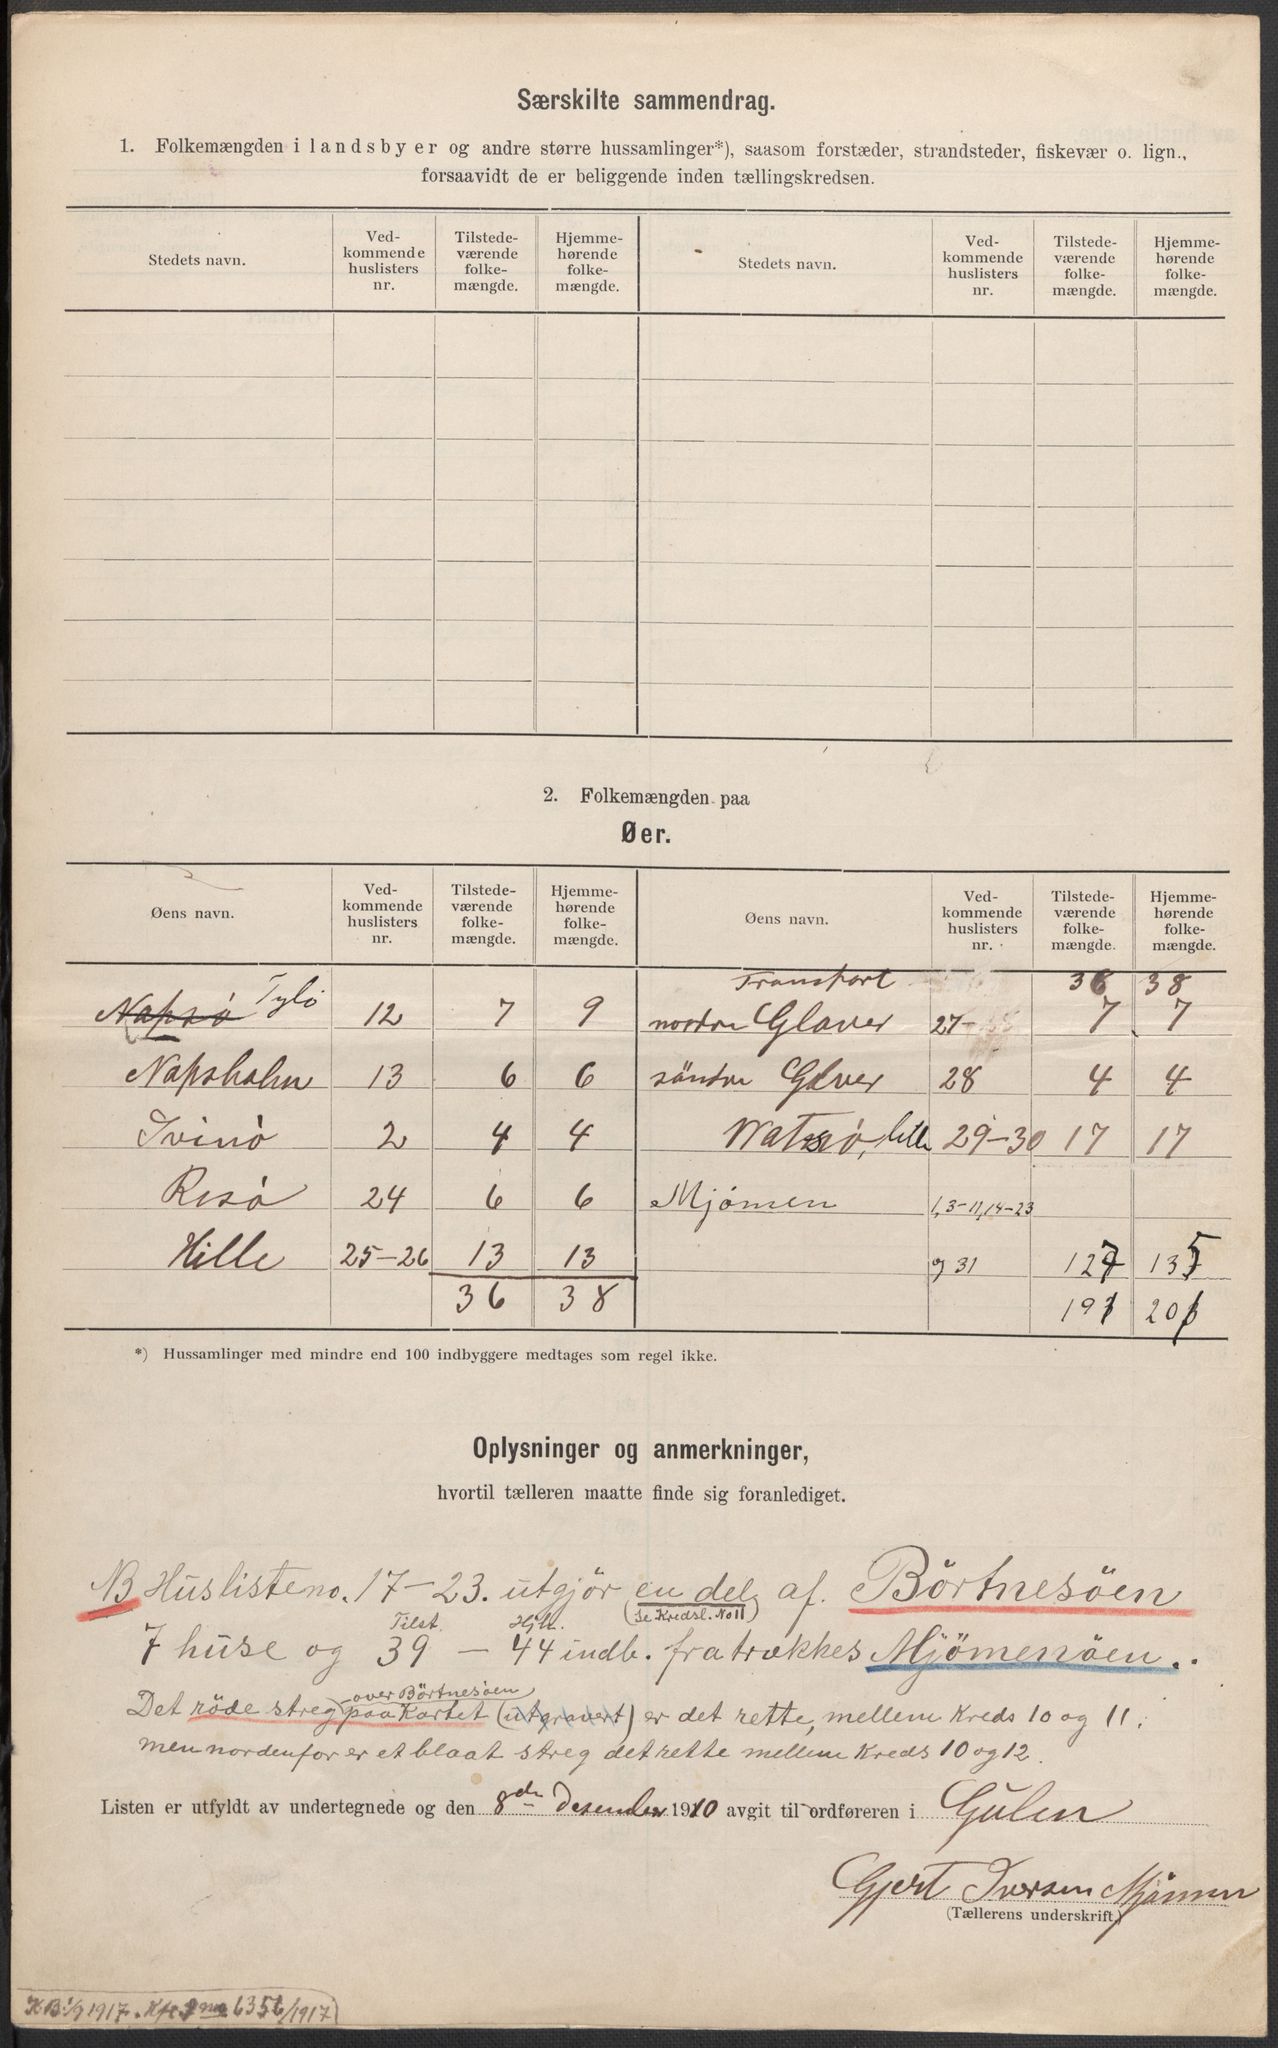 Særskilte sammendrag.
1. Folkemængden i landsbyer og andre større hussamlinger*), saasom forstæder, strandsteder, fiskevær o. lign.,
forsaavidt de er beliggende inden tællingskredsen.
Stedets navn. Ved-kommende huslisters nr. Tilstede-værende folke-mængde. Hjemme-hørende folke-mængde. Stedets navn. Ved-kommende huslisters nr. Tilstede-værende folke-mængde. Hjemme-hørende folke-mængde.
2. Folkemængden paa
Øer.
Øens navn. Ved-kommende huslisters nr. Tilstede-værende folke-mængde. Hjemme-hørende folke-mængde. Øens navn. Ved-kommende huslisters nr. Tilstede-værende folke-mængde. Hjemme-hørende folke-mængde.
Transport 36 38
Napsö Tylö 12 7 9 nordre Glaver 27 7 7
Napsholm 13 6 6 söndre Glaver 28 4 4
Ivinö 2 4 4 Watsö, lille 29-30 17 17
Risö 24 6 6 Mjömen 1,3-11,14-23
Hille 25-26 13 13 g 31 127 135
36 38 191 201
*) Hussamlinger med mindre end 100 indbyggere medtages som regel ikke.
Oplysninger og anmerkninger,
hvortil tælleren maatte finde sig foranlediget.
NB Huslisteno. 17-23. utgjör en del af. Börtnesöen
Tilst. Hjh. (Se Kredsl. No 11)
7 huse og 39 - 44 indb. fratrækkes Mjömenöen..
over Börtnesöen
Det röde streg paa Kartet (utgravert) er det rette, mellem Kreds 10 og 11.
men nordenfor er et blaat streg det rette mellem Kreds 10 og 12.
Listen er utfyldt av undertegnede og den 8de Desember 1910 avgit til ordføreren i Gulen
Gjert Iversen Mjömen
(Tællerens underskrift)
6356/1917